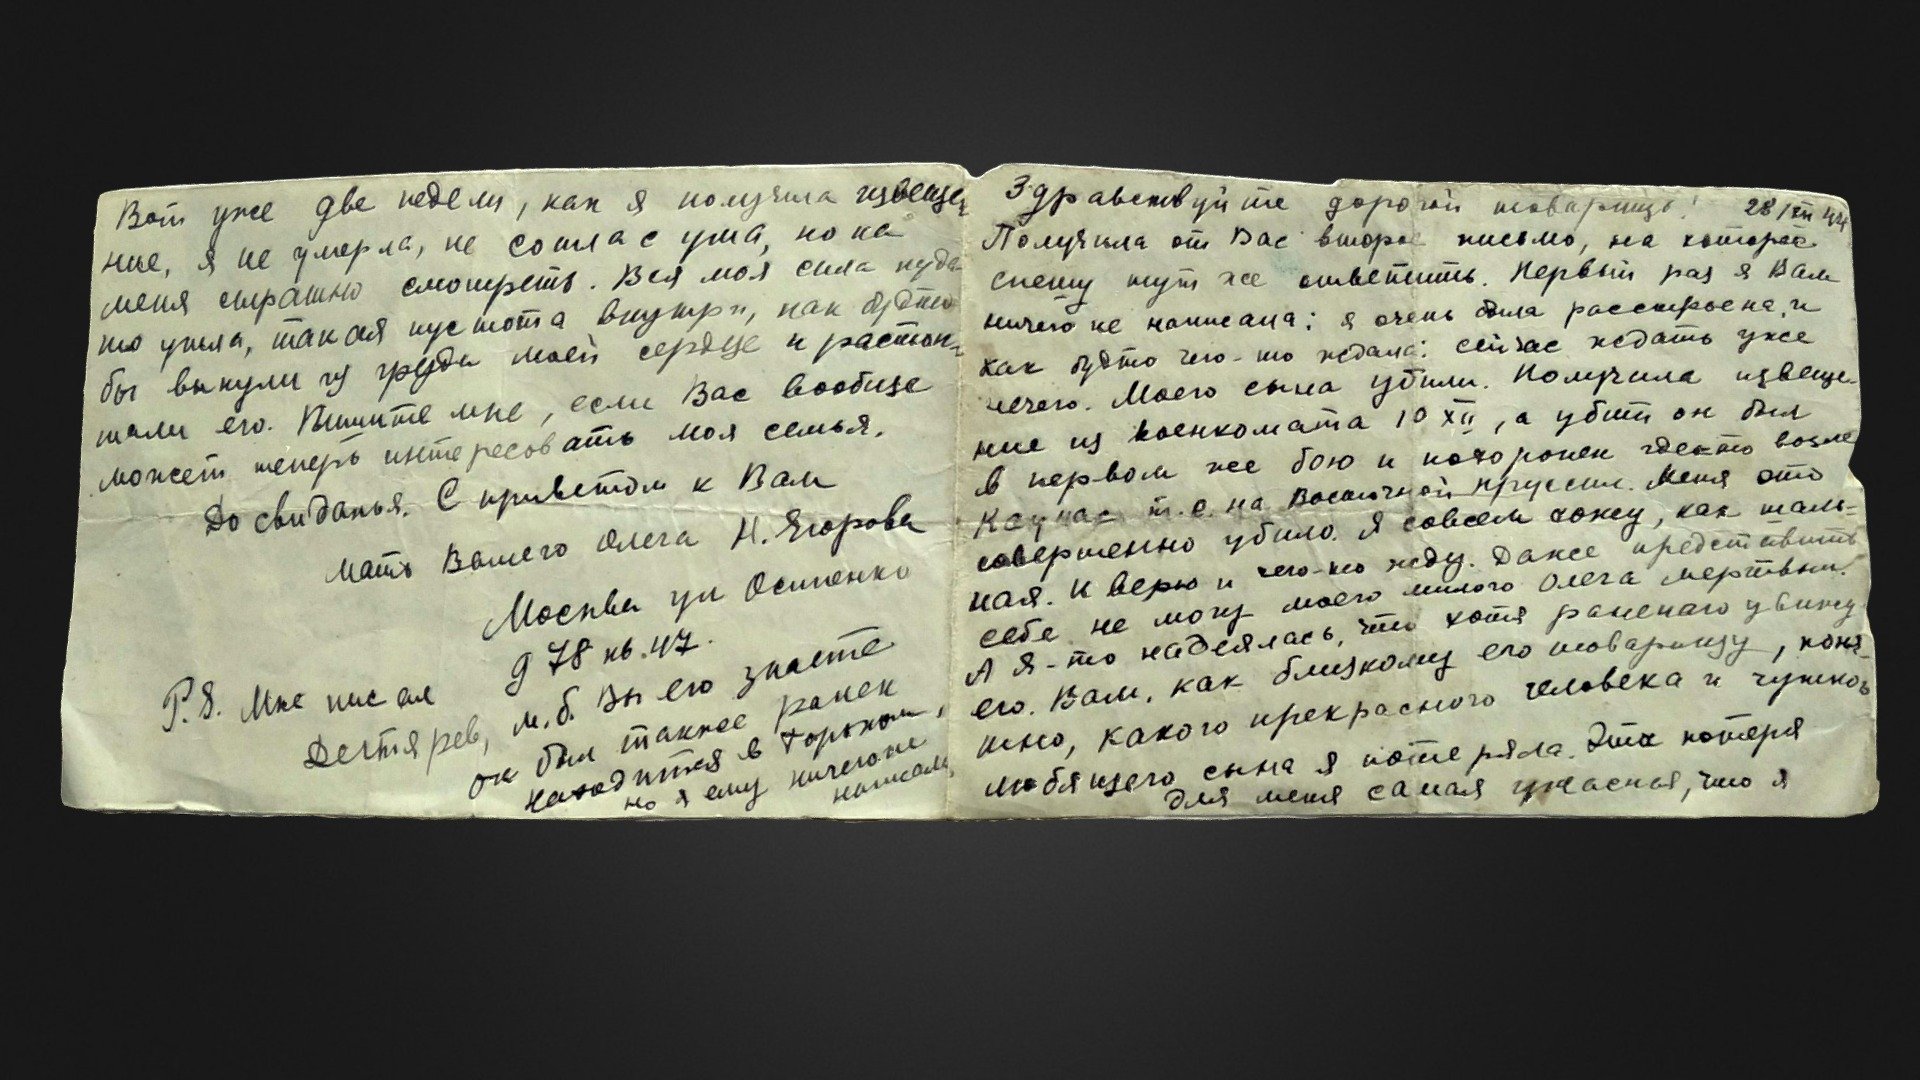 Здравствуйте дорогой товарищ! 28/XII 44
Получила от Вас второе письмо, на которое
спешу тут же ответить. Первый раз я Вам
ничего не написала: я очень была расстроена, и
как будто чего-то ждала: сейчас ждать уже
нечего. Моего сына убили. Получила извеще-
ние из военкомата 10 XII, а убит он был
в первом же бою и похоронен где-то возле
Каунас т.е. на Восточной Пруссии. Меня это
совершенно убило. Я совсем хожу, как шаль-
ная. И верю и чего-то жду. Даже представить
себе не могу моего милого Олега мертвым.
А я-то надеялась, что хотя раненаго увижу
его. Вам, как близкому его товарищу, поня-
тно, какого прекрасного человека и чутко
любящего сына я потеряла. Эта потеря
для меня самая ужасная, что я
Вот уже две недели, как я получила извеще
ние, я не умерла, не сошла с ума, но на
меня страшно смотреть. Вся моя сила куда-
то ушла, такая пустота внутри, как будто
бы вынули из груди моей сердце и растоп-
тали его. Пишите мне, если Вас вообще
может теперь интересовать моя семья.
До свиданья. С приветом к Вам
мать Вашего Олега Н. Егорова
Москва ул Осипенко
д 78 кв. 47.
P.S. Мне писал
Дегтярев, м.б. Вы его знаете
он был также ранен
находится в Горьком,
но я ему ничего не
написала.